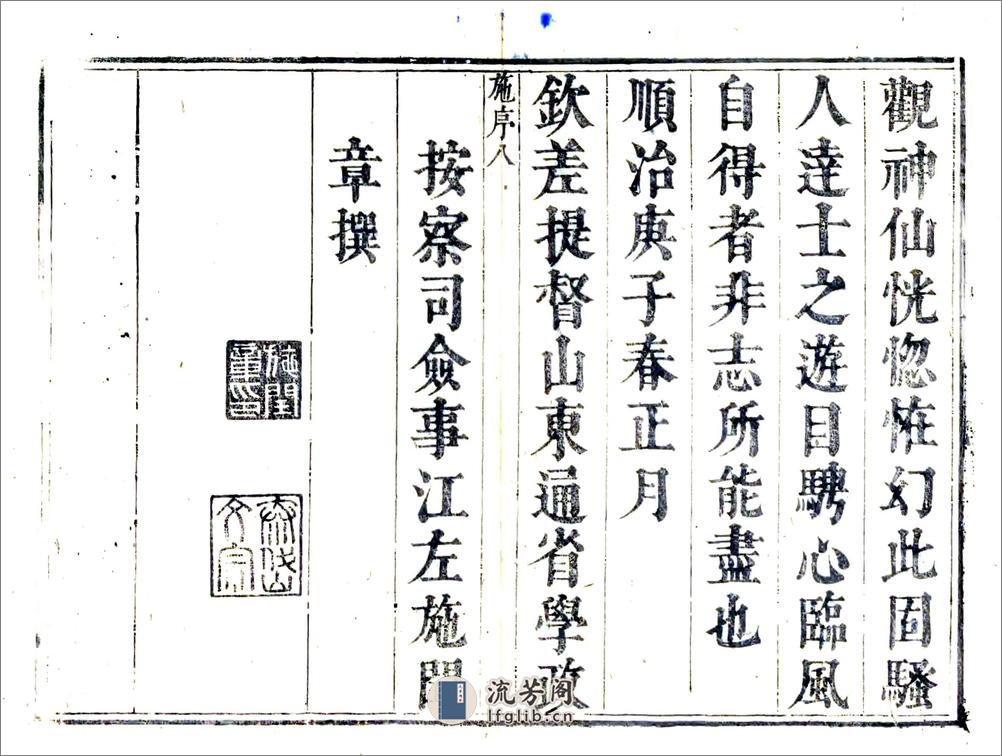 觀神仙恍惚惟幻此固騷
人逹士之遊目騁心臨風
自得者非志所能盡也
順治庚子春正月
欽差提督山東通省學政
施序八
按察司僉事江左施閏
章撰
施閏章印
泰岱山
文宗
流芳阁
lfglib.cn